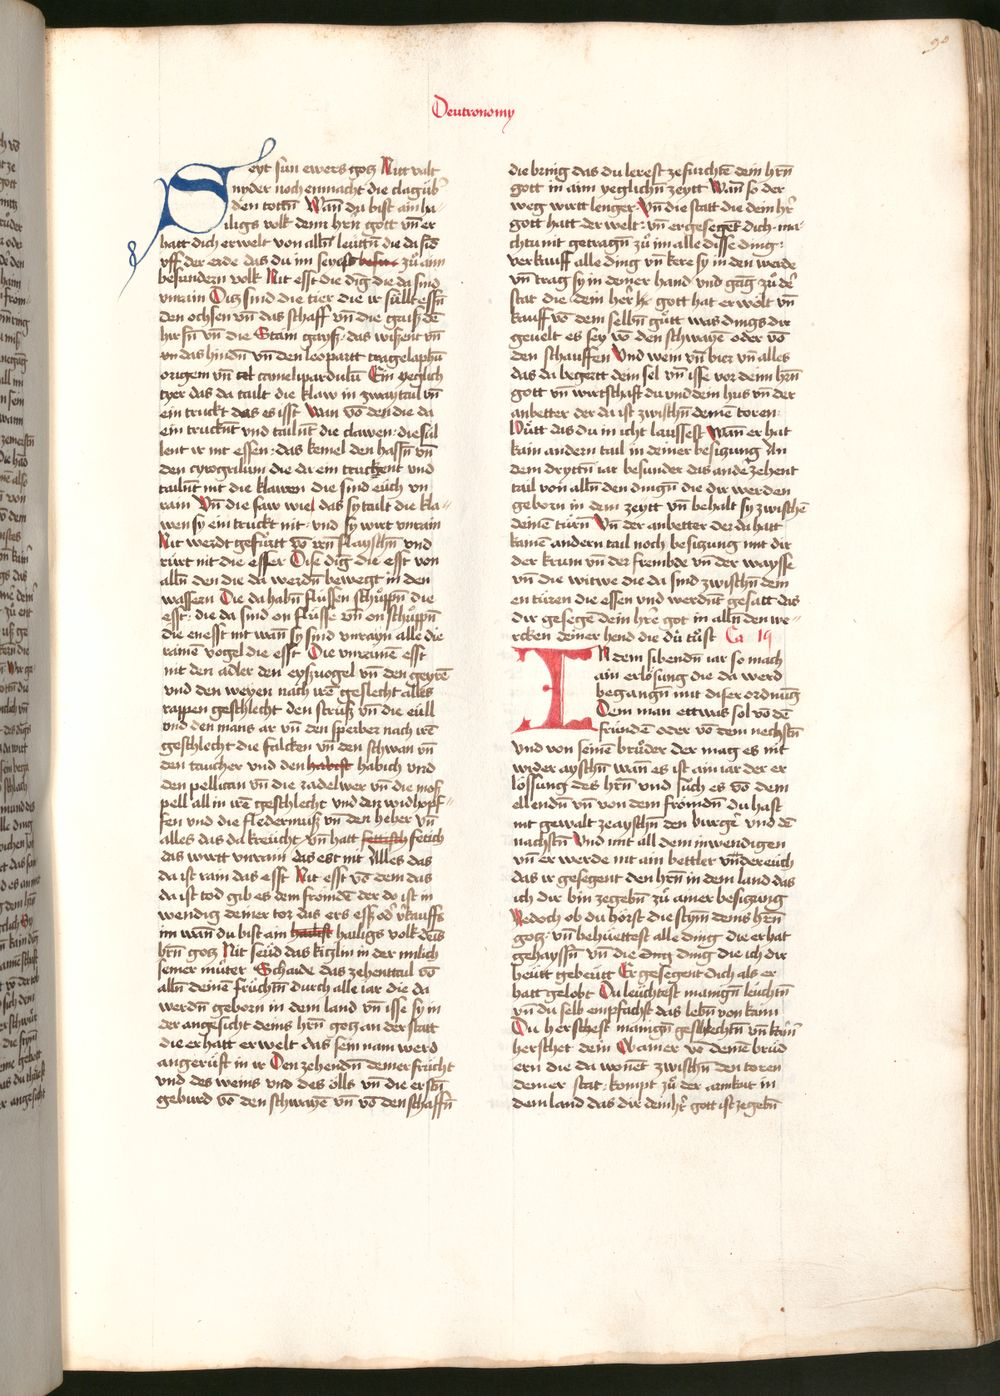 90
Deutronomy
Seyt sün ewers gotz Nitt valt
nyder noch enmacht die clagüb
den tottn̄ Wan̄ du bist ain ha-
iligs volk deim hrn̄ gott vn̄ er
hatt dich erwelt von alln̄ leüttn̄ die da sid
vff der erde das du im seyest besūn zů ainn
besundern volk Nit esst die diḡ die da sind
vnrain Dis sind die tier die ir süllt essn̄
den ochsen vn̄ das schaff vn̄ die gaiß dē
hirsn̄ vn̄ die Stain gayß das wisent vn̄
vn das hindn̄ vn̄ den leopartt tragelaphū
origem vn̄ camelipardulū Ein yeglich
tyer das da tailt die klaw in zway tail vn̄
ein truckt das es isst Wan vō den die da
ein truckn̄t vnd tailnt die clawen die sül
lent ir nit essen das kemel den hassn̄ vn̄
den cyrogrilum die da ein truckent vnd
tailnt nit die klawen die sind eüch vn
rain Vn̄ die saw wiel das sy tailt die kla-
wen sy ein truckt nit vnd sy wirt vnrain
Nit werdt gefürtt vō irn̄ flayschn̄ vnd
rürt nit die esser Dise diḡ die esst von
alln̄ den die da werdn̄ bewegt in den
wassern Die da habn̄ flüssen schüppn̄ die
esst die da sind on flüsse vn̄ on schüppn̄
die enesst nit wan̄ sy sind vnrayn alle die
rainē vogel die esst Die vnrainē esst
nit den adler den eyßvogel vn̄ den geyrē
vnd den weyen nach irē geslecht alles
rappen geschlecht den struß vn̄ die eüll
vnd den mans ar vn̄ den sperber nach irē
geschlecht die falcken vn̄ den schwan vn̄
den taucher vnd den habest habich vnd
den pellican vn̄ die zadelwer vn̄ die moß
pell all in irē geschlecht vnd den widhopf-
fen vnd die fledermuß vn̄ den heher vn̄
alles das da kreücht vn̄ hatt fettisch fetich
das wirtt vnrain das est nit Alles das
da ist rain das esst Nit esst vō dem das
da ist tod gib es dem frömdē der do ist in
wendig deiner tor das ers eß od̄ v̄kauffs
im wan̄ du bist ain hailigs volk deīs
hrn̄ gotz Nit seüd das kiczlin in der milch
seiner müter Schaide das zehenttail vō
alln̄ deinē früchtn̄ durch alle iar die da
werdn̄ geborn in dem land vn̄ isse sy in
der angesicht deins hrn̄ gotz an der statt
die er hatt erwelt das sein nam werd
angerüft in ir Den zehendn̄ deiner frücht
vnd des weins vnd des ölls vn̄ die erstn̄
geburd vō den schwaýē vn̄ vō den schaffn̄
die bring das du lerest ze fürchtē dein hrn̄
gott in aim yeglichn̄ zeytt Wan̄ so der
weg wirtt lenger Vn̄ die statt die dein hr̄
gott hatt der welt vn̄ er gesegēt dich ma-
chtu nit getragn̄ zů im alle disse ding
verkauff alle ding vn̄ kere sy in den werde
vn̄ trag sy in deiner hand vnd gāg zů dē
stat die dem her̄ gott hat erwölt vn̄
kauff vō dem selbn̄ gůtt was dings dir
geuelt es sey vō den schwaýē oder vō
den schauffen Vnd wein vn̄ bier vn̄ alles
das da begertt dein sel vn̄ isse vor deim hrn̄
gott vn̄ wirtschaft du vnd dein hus vn̄ der
anbetter der da ist zwischn̄ deinē toren
Hütt das du in icht laussest Wan̄ er hat
kain andern tail in deiner besiczung An
dem drytn̄ iar besunder das ander zehent
tail von alln̄ den dingn̄ die dir werden
geborn in dem zeytt vn̄ behalt sy zwischē
deinē türn̄ Vn̄ der anbetter der da hatt
kainē andern tail noch besizung mit dir
der krum vn̄ der frembde vn̄ der waysse
vn̄ die witwe die da sind zwischn̄ dein
en türen die essen vnd werdnt gesatt das
dir gesegē dein hr̄e got in alln̄ den we-
rcken deiner hend die du tůst Ca 19
IN dem sibendn̄ iar so mach
ain erlösung die da werd
begangn̄ mit diser ordnug
Dem man ettwas sol vō dē
fründē oder vō dem nechstn̄
vnd von seinē brüder der mag es nit
wider ayschn̄ wan̄ es ist ain iar der er
lössung des hrn̄ vnd sůch es vō dem
ellendn̄ vn̄ von dem frömdn̄ du hast
nit gewalt ze ayschn̄ den burgē vnd dē
nachstn̄ Vnd mit all dem inwendigen
vn̄ er werde nit ain bettler vnder eüch
das ir gesegent den hrn̄ in dem land das
ich dir bin zegebn̄ zů ainer besiczung
Yedoch ob du hörst die stym̄ deins hrn̄
gotz vn̄ behüettest alle ding die er hat
gehayssn̄ vn̄ die ding ding die ich dir
heütt gebeütt Er gesegent dich als er
hatt gelobt Du leüchtest manign̄ leüchtn̄
vn̄ du selb empfachst das lebn̄ von kaim
Du herschest manign̄ geschlechtn̄ vn̄ kain̄
herschet dein Ob ainer vō deinē brüd
ern die da wonēt zwischn̄ den toren
deiner stat kompt zů der ainkait in
dem land das dir dein hr̄ gott ist zegebn̄